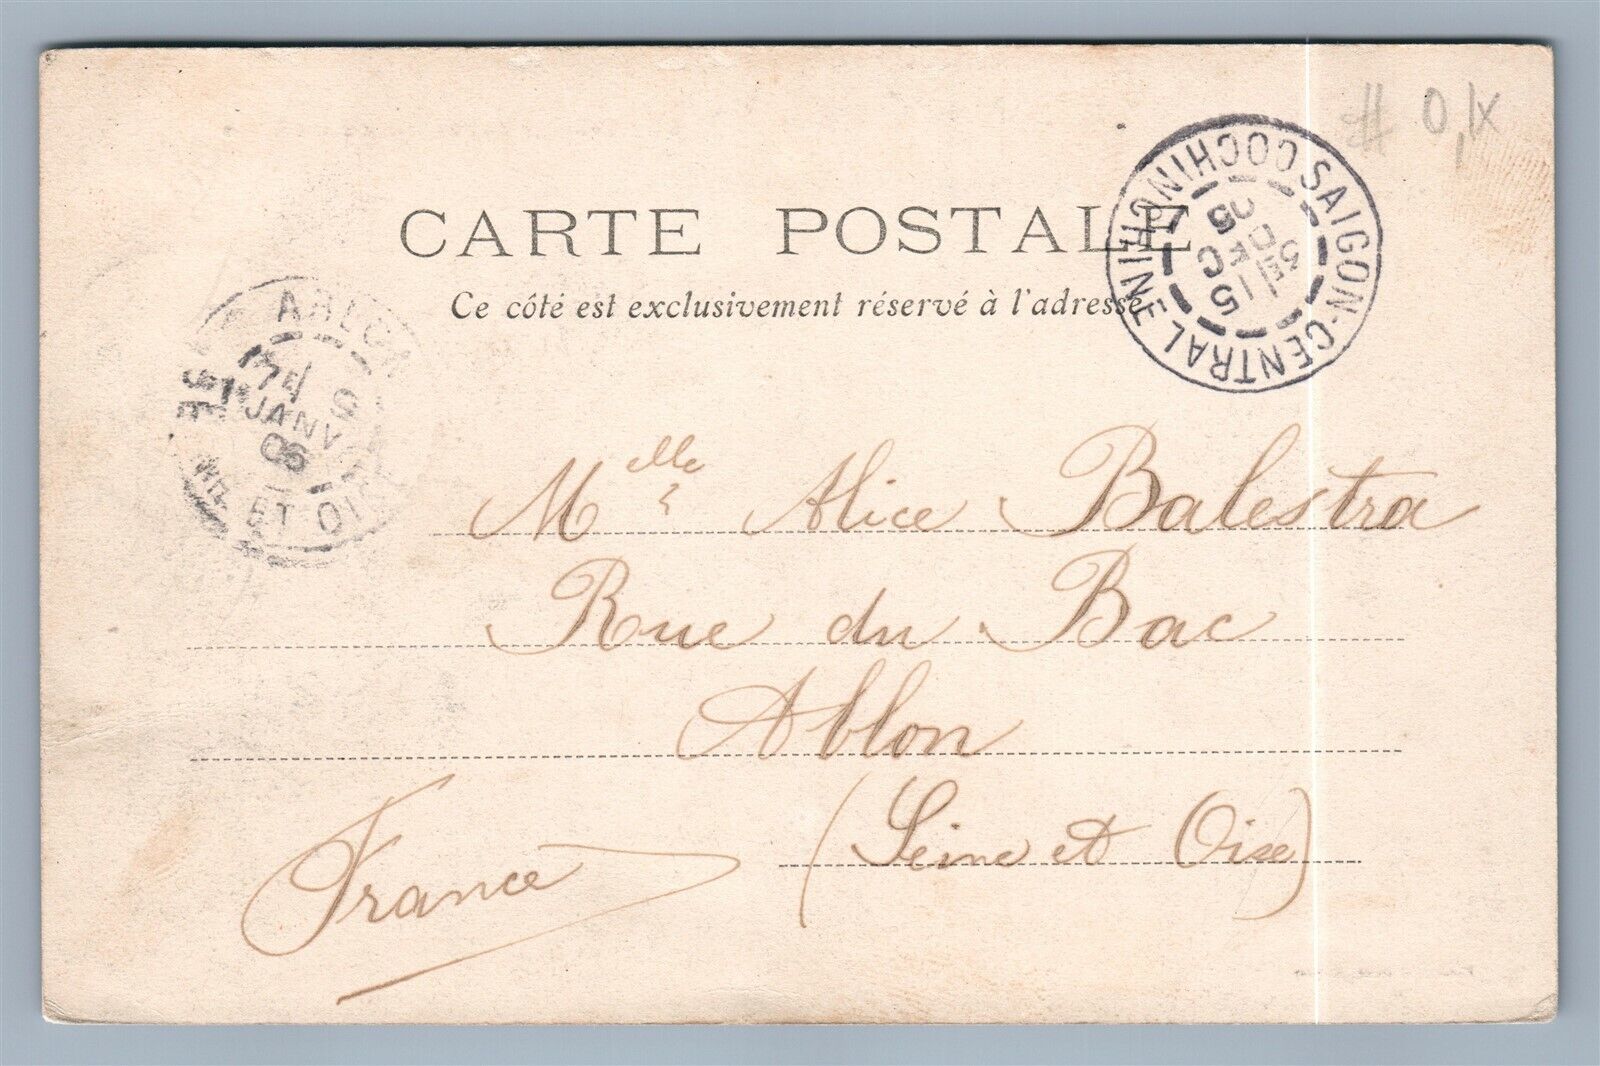 # 0,
CARTE POSTALE
Ce côté est exclusivement réservé à l'adresse
SAIGON-CENTRAL
COCHINCHINE
3E
5 DEC
05
ABLON
7E 9
JANV
06
ET OISE
Melle Alice Balestra
Rue du Bac
Ablon
(Seine et Oise)
France